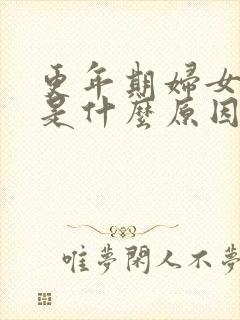 更年期婦女
是什麼原因
唯夢閑人不夢